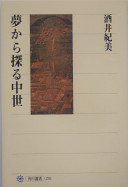 酒井紀美
夢から探る中世
角川選書